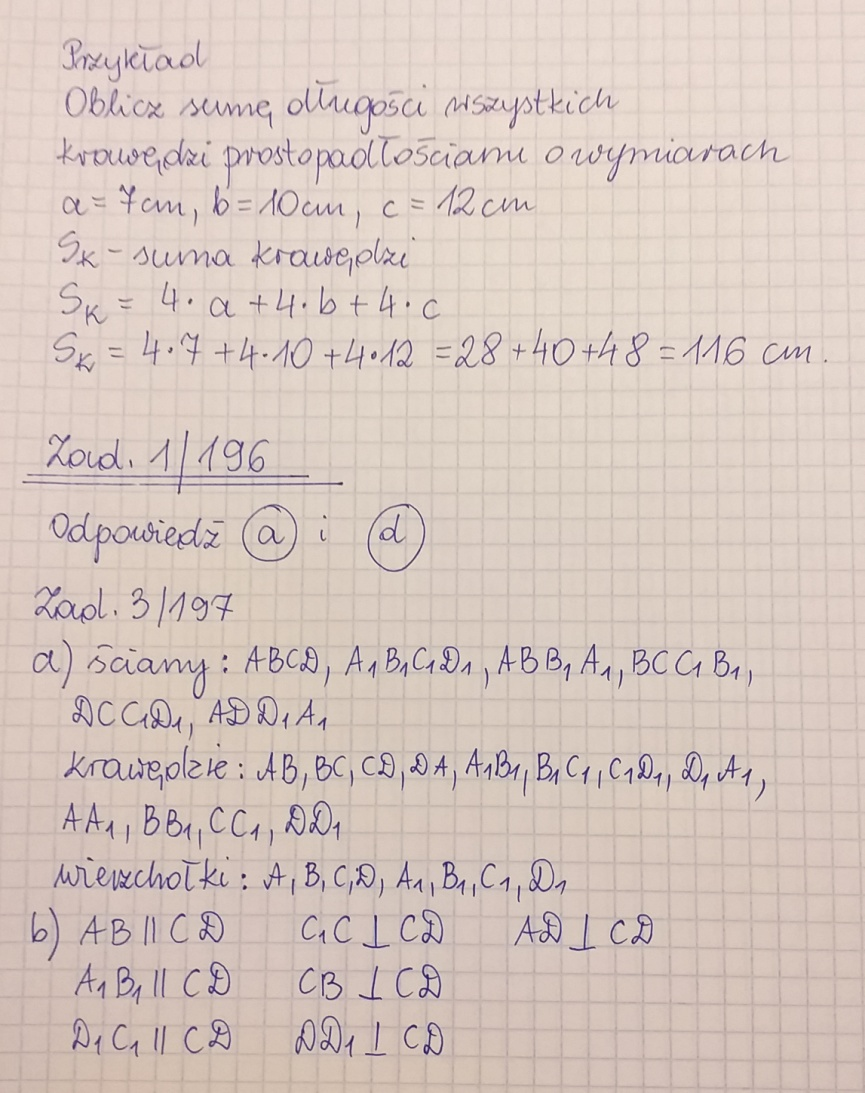 Przykład
Oblicz sumę długości wszystkich
krawędzi prostopadłościanu o wymiarach
a = 7cm, b = 10cm, c = 12cm
Sₖ - suma krawędzi
Sₖ = 4·a + 4·b + 4·c
Sₖ = 4·7 + 4·10 + 4·12 = 28 + 40 + 48 = 116 cm.
Zad. 1/196
Odpowiedź a i d
Zad. 3/197
a) ściany: ABCD, A₁B₁C₁D₁, ABB₁A₁, BCC₁B₁,
DCC₁D₁, ADD₁A₁
krawędzie: AB, BC, CD, DA, A₁B₁, B₁C₁, C₁D₁, D₁A₁,
AA₁, BB₁, CC₁, DD₁
wierzchołki: A, B, C, D, A₁, B₁, C₁, D₁
b) AB || CD C₁C ⊥ CD AD ⊥ CD
A₁B₁ || CD CB ⊥ CD
D₁C₁ || CD DD₁ ⊥ CD